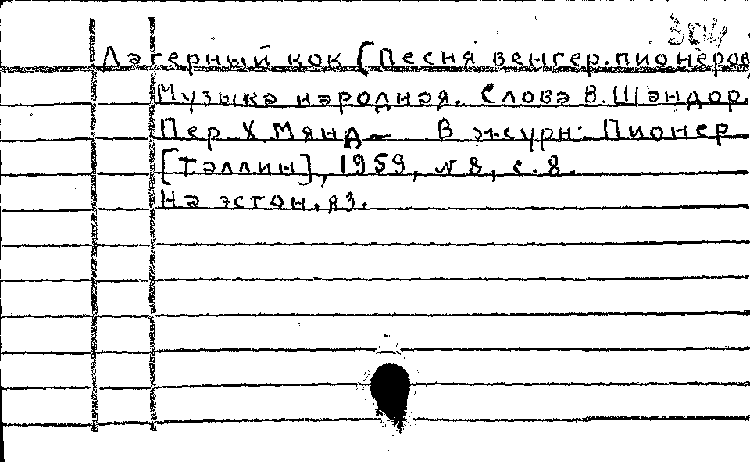 304
Лагерный кок [Песня венгер. пионеров
Музыка народная. Слова В. Шандор.
Пер. Х. Мянд— В журн: Пионер
[Таллин], 1959, № 8, с. 8.
На эстон. яз.